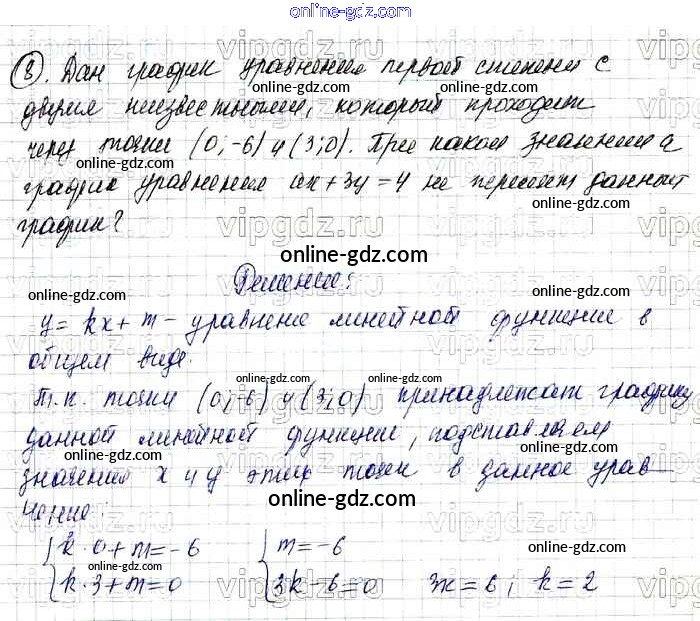 online-gdz.com
8. Дан график уравнения первой степени с
двумя неизвестными, который проходит
через точки (0;-6) и (3;0). При каком значении a
график уравнения ax+3y=4 не пересечет данный
график?
online-gdz.com
Решение:
y = kx + m - уравнение линейной функции в
общем виде.
Т.к. точки (0;-6) и (3;0) принадлежат графику
данной линейной функции, подставляем
значения x и y этих точек в данное урав-
нение:
online-gdz.com
{k·0+m=-6 {m=-6
{k·3+m=0 {3k-6=0 3k=6; k=2